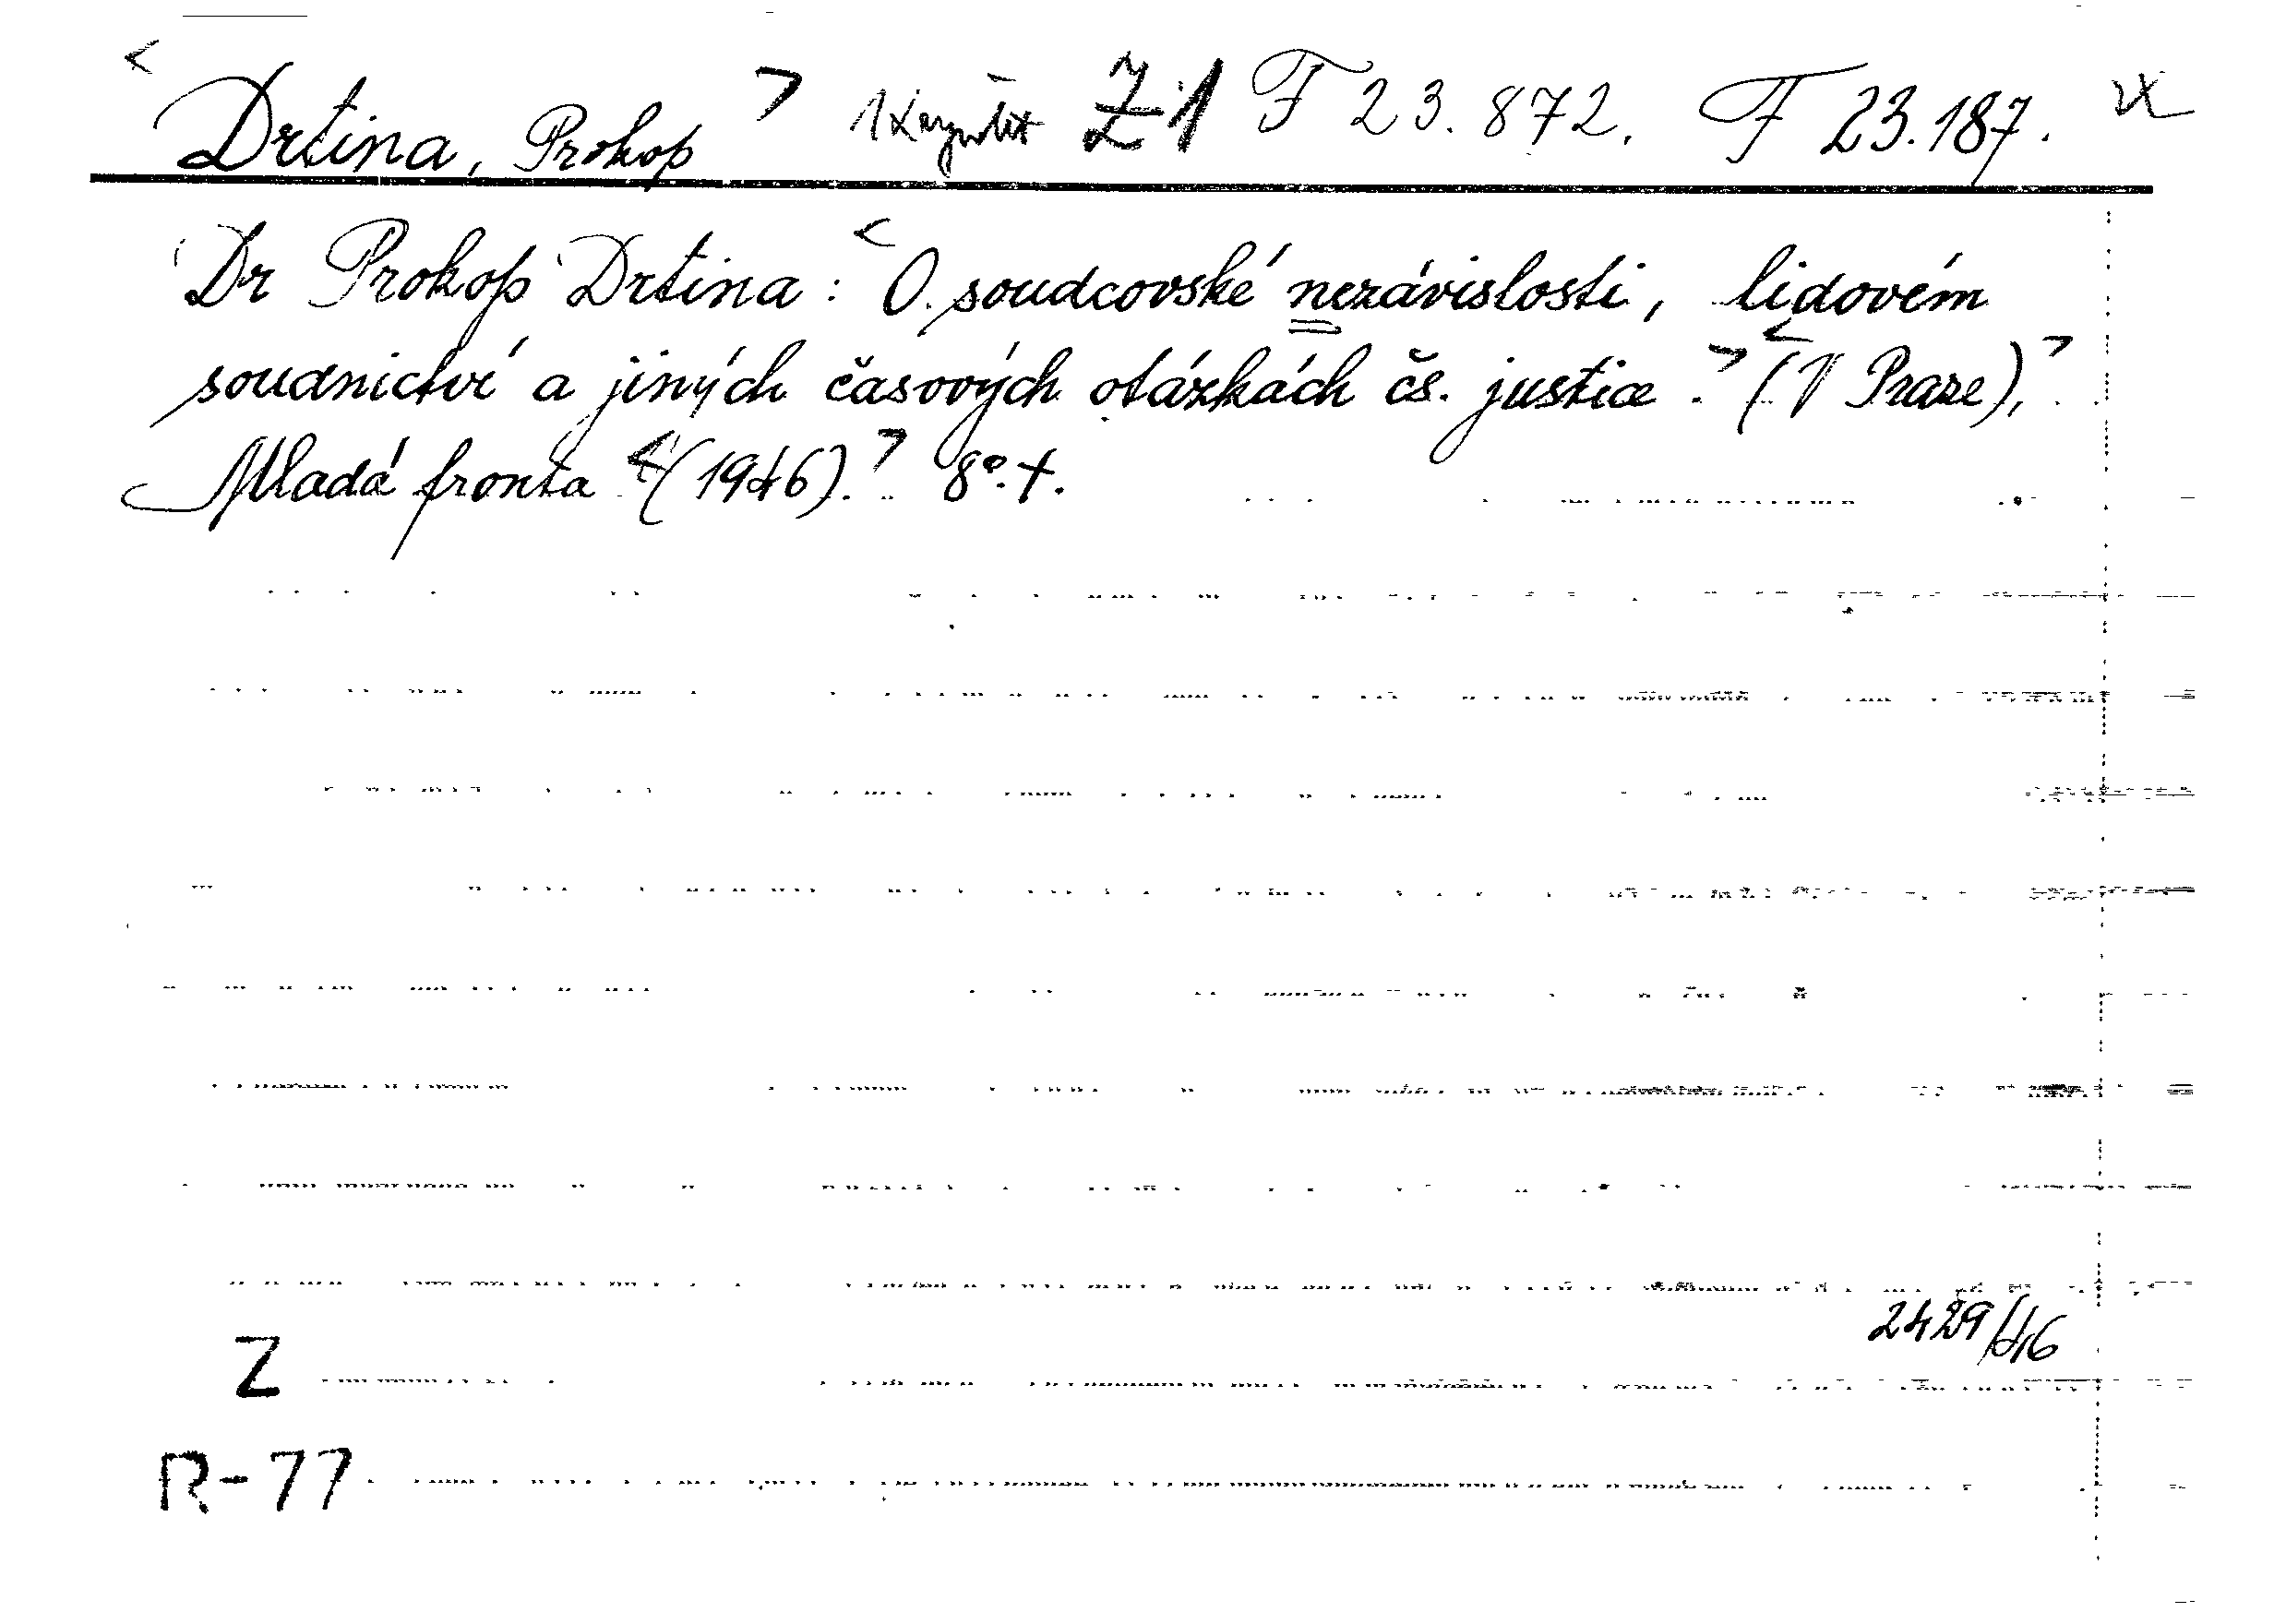 < Drtina, Prokop > Ž 1 F 23.872. F 23.187.
Dr Prokop Drtina: < O soudcovské nezávislosti, lidovém
soudnictví a jiných časových otázkách čs. justice. > < (V Praze), >
Mladá fronta < (1946). > 8°.
2429/46
Z
R-77